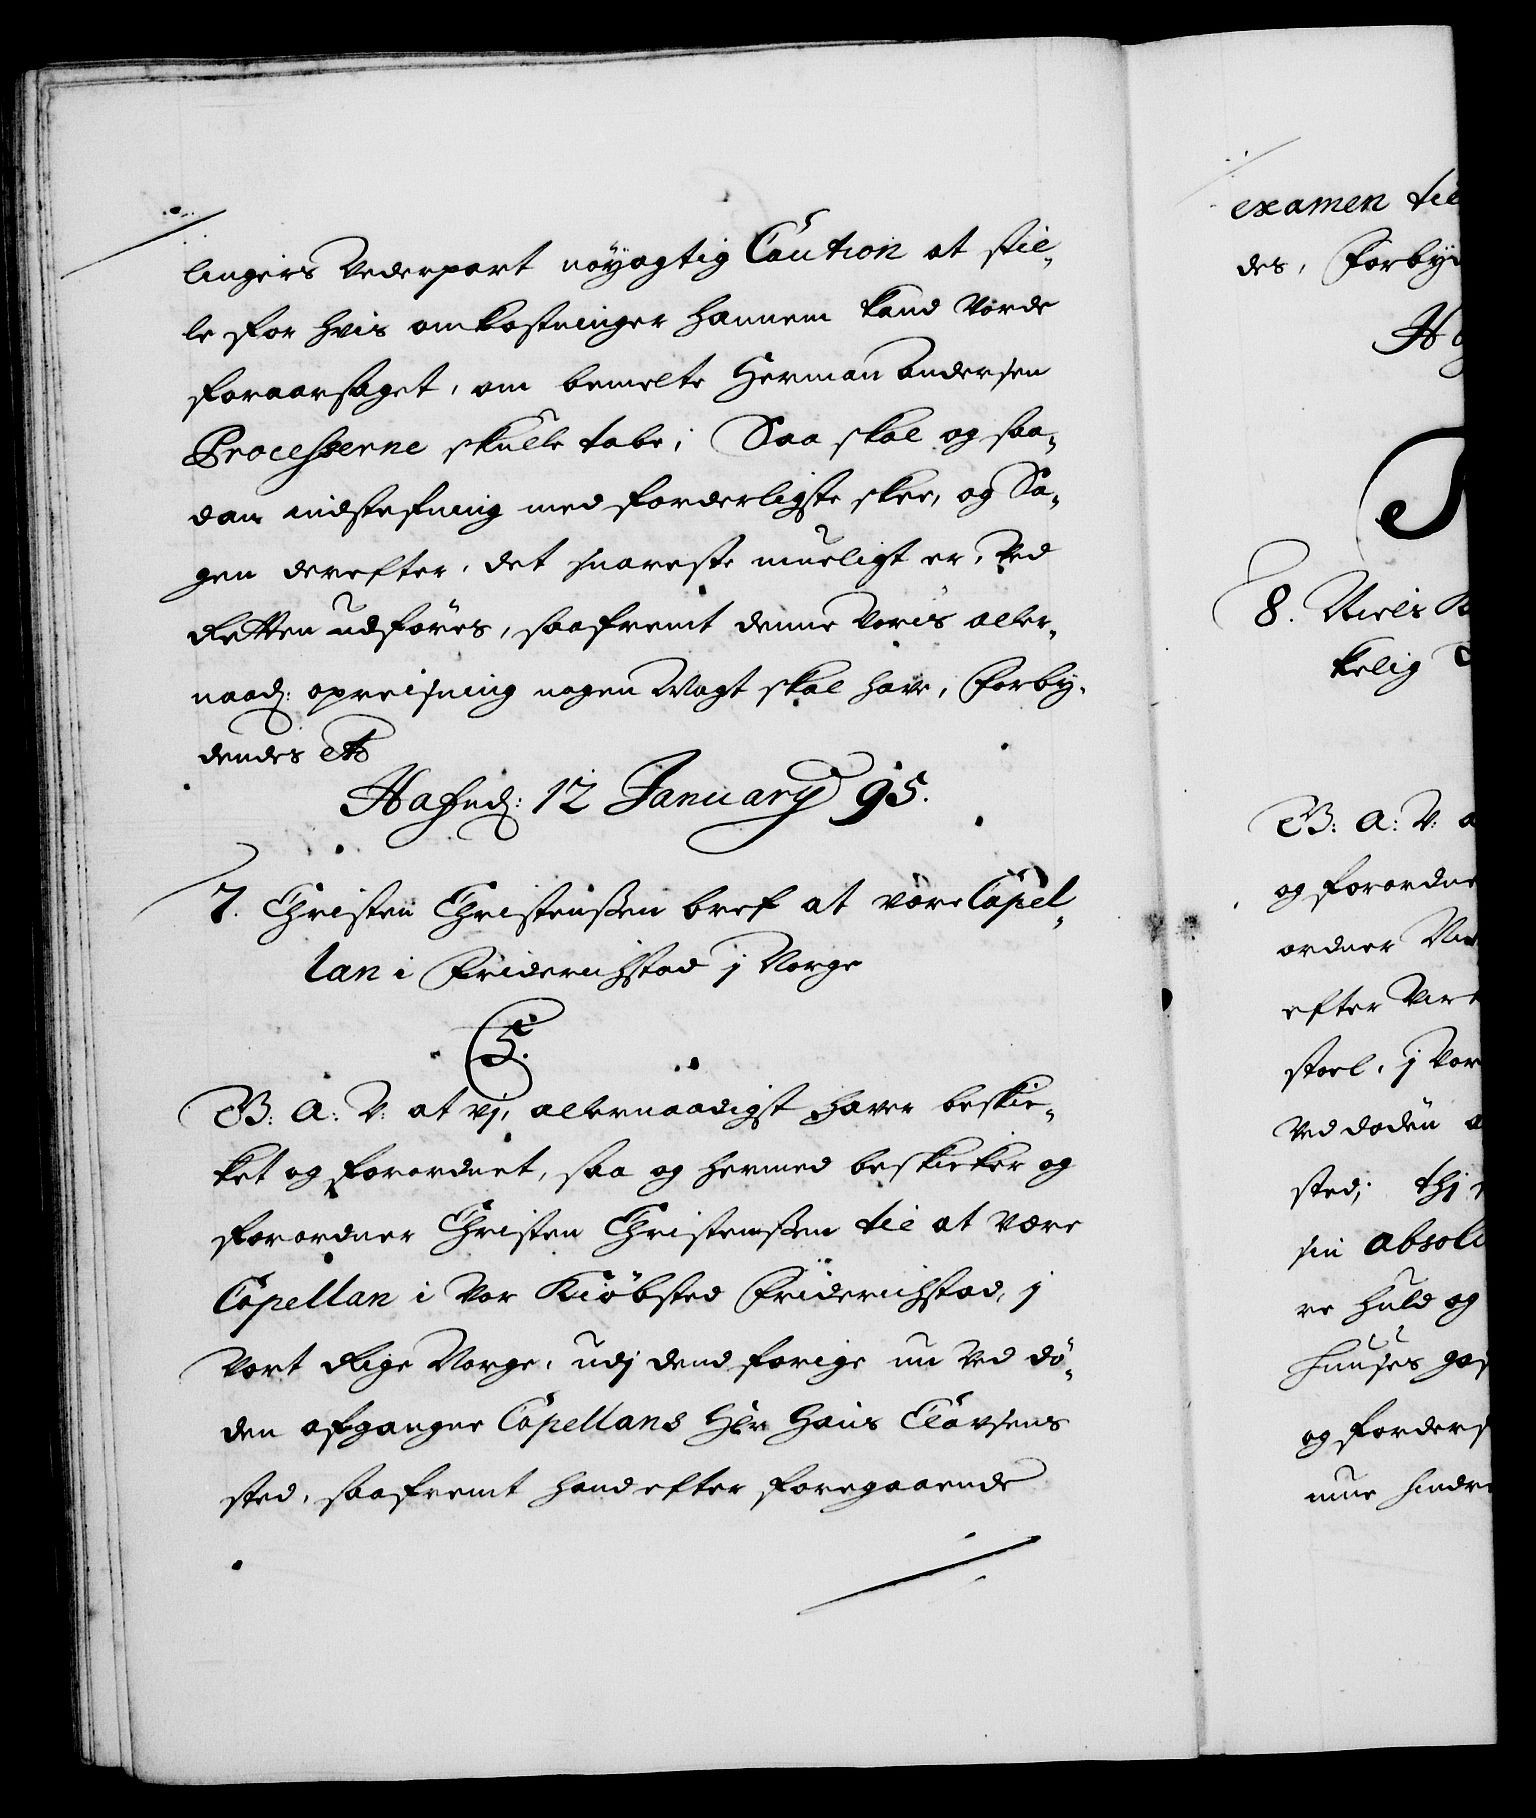 lingers Vederpart nöyagtig Caution at stil-
le for hvis omkostninger hannem kand vorde
foraarsaget, om bemelte Herman Andersen
Processerne skulle tabe; Saa skal og saa-
dan indstefning med forderligste skee, og Sa-
gen derefter, det snareste mueligt er, ved
Retten udföres, saafremt denne Voris aller-
naad: opreisning nogen Magt skal have, Forby-
dendes etc
Hafnd: 12 January 95.
7. Christen Christenssen bref at være Capel-
lan i Friderichstad j Norge
C5.
G: A: V: at vj, allernaadigst haver beskic-
ket og forordnet, saa og hermed beskicker og
forordner Christen Christenssen til at være
Capellan i vor Kiöbsted Friderichstad, j
vort Rige Norge, udj dend forige nu ved dö-
den afgangne Capellans Hr Hans Clavsens
sted, saafremt hand efter foregaaende
examen til
des, Forby
H
8. Niels
kelig
G: A: V:
og forordne
ordner
efter
stoel, j vor
ved döden
sted; thj
sin absol
re huld og
huuses
og